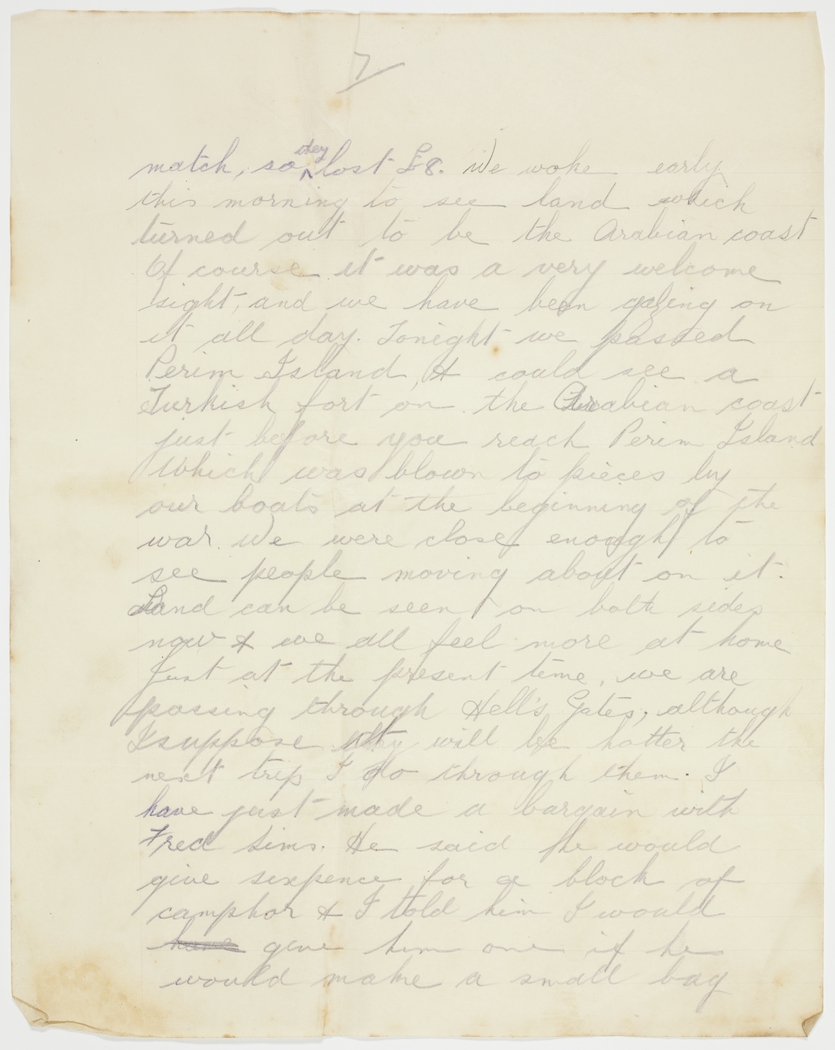 7
match, so they lost £8. We woke early
this morning to see land which
turned out to be the Arabian coast
Of course it was a very welcome
sight, and we have been gazing on
it all day. Tonight we passed
Perim Island, & could see a
Turkish fort on the Arabian coast
just before you reach Perim Island
Which was blown to pieces by
our boats at the beginning of the
war. We were close enough to
see people moving about on it.
Land can be seen on both sides
now & we all feel more at home
Just at the present time, we are
passing through Hell's Gates, although
I suppose they will be hotter the
next trip I do through them. I
have just made a bargain with
Fred Sims. He said he would
give sixpence for a block of
camphor & I told him I would
have give him one if he
would make a small bag